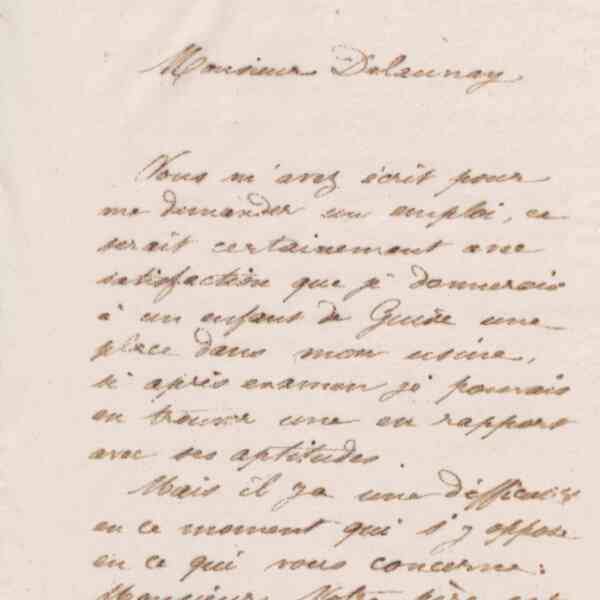 Monsieur Delaunay
Vous m'avez écrit pour
me demander un emploi, ce
serait certainement une
satisfaction que je donnerais
à un enfant de Guise une
place dans mon usine,
si après examen je pouvais
en trouver une en rapport
avec ses aptitudes
Mais il y a une difficulté
en ce moment qui s'y oppose
en ce qui vous concerne.
Monsieur Votre père est